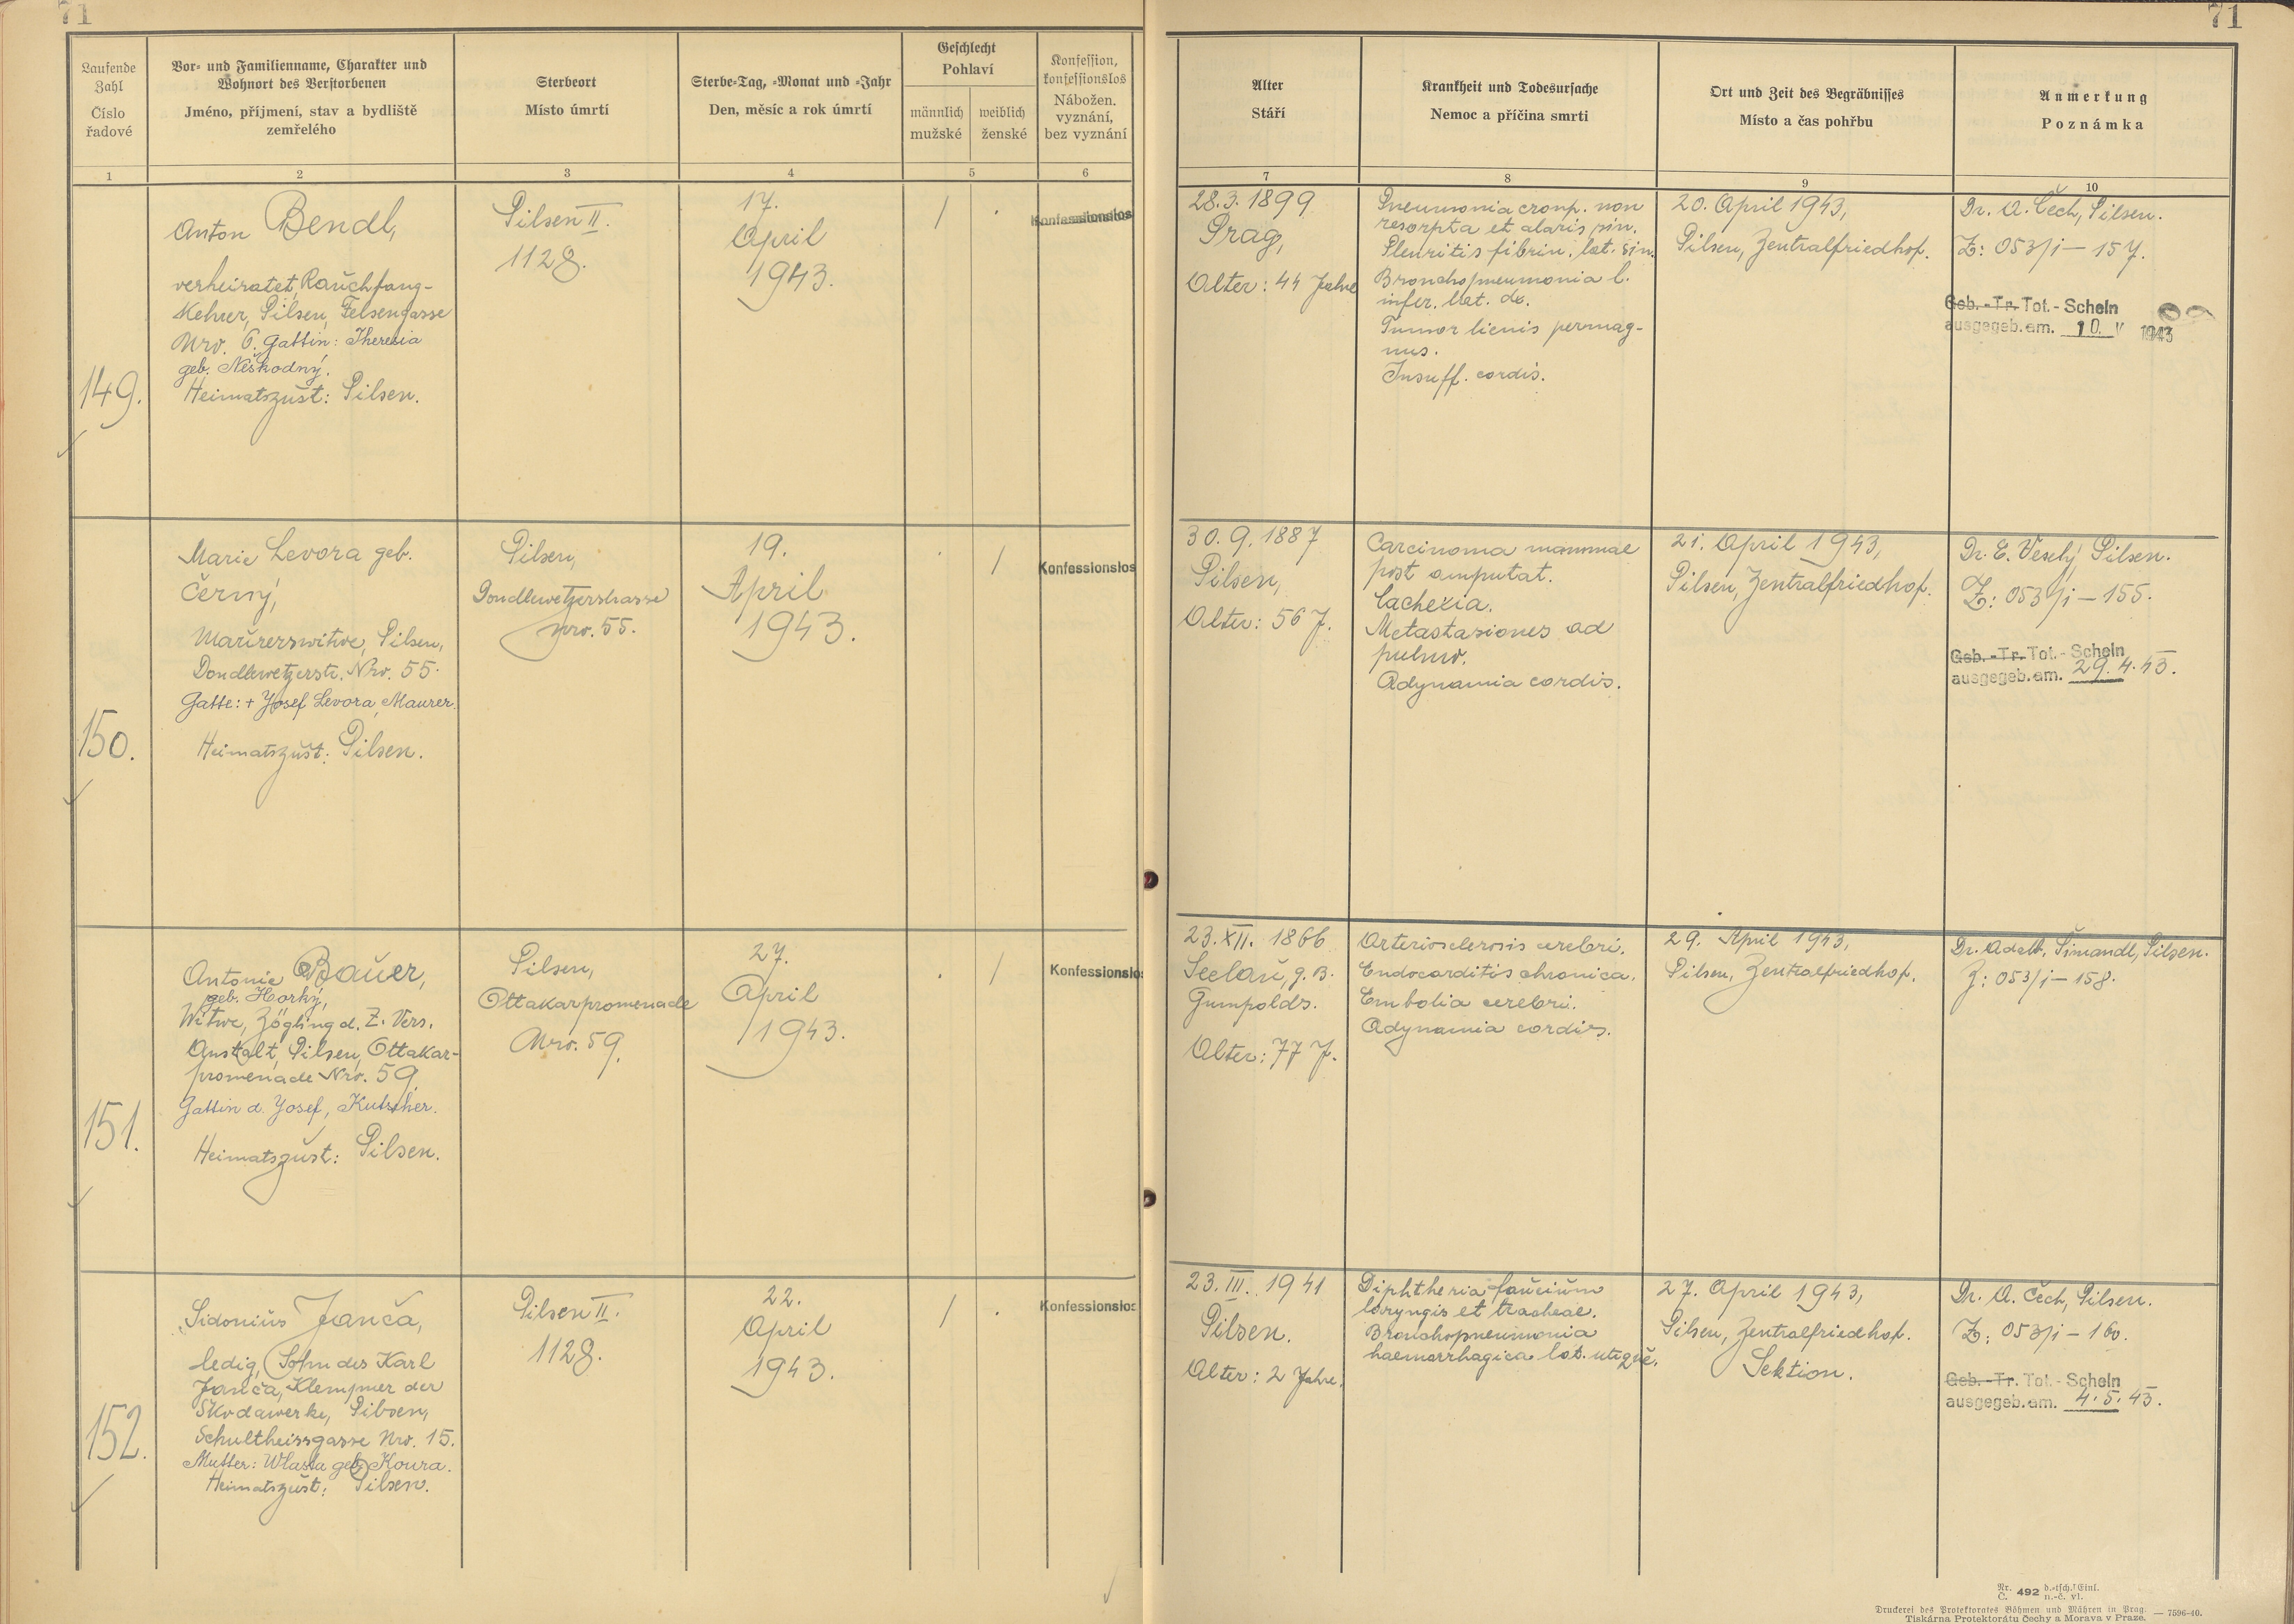 71
71
Laufende Zahl
Číslo řadové
Vor- und Familienname, Charakter und
Wohnort des Verstorbenen
Jméno, příjmení, stav a bydliště
zemřelého
Sterbeort
Místo úmrtí
Sterbe-Tag, -Monat und -Jahr
Den, měsíc a rok úmrtí
Geschlecht
Pohlaví
männlich
mužské
weiblich
ženské
Konfession,
konfessionslos
Nábožen.
vyznání,
bez vyznání
Alter
Stáří
Krankheit und Todesursache
Nemoc a příčina smrti
Ort und Zeit des Begräbnisses
Místo a čas pohřbu
Anmerkung
Poznámka
1
2
3
4
5
6
7
8
9
10
149.
Anton Bendl,
verheiratet, Rauchfang-
Kehrer, Pilsen, Felsengasse
Nro. 6. Gattin: Theresia
geb. Neškodný.
Heimatszust: Pilsen.
Pilsen II.
1128.
17.
April
1943.
/
.
Konfessionslos
28.3.1899
Prag,
Alter: 44 Jahre
Pneumonia croup. non
resorpta et alaris sin.
Pleuritis fibrin. lat. sin.
Bronchopneumonia l.
infer. lat. dx.
Tumor lienis permag-
nus.
Insuff. cordis.
20. April 1943,
Pilsen, Zentralfriedhof.
Dr. A. Čech, Pilsen.
Z: 053/i – 157.
Geb. -Tr. Tot.- Schein
ausgegeb. am. 10. V 1943
150.
Marie Levora geb.
Černý,
Maurerswitwe, Pilsen,
Doudlewetzerstr. Nro. 55.
Gatte: + Josef Levora, Maurer.
Heimatszust: Pilsen.
Pilsen,
Doudlewetzerstrasse
Nro. 55.
19.
April
1943.
.
/
Konfessionslos
30.9.1887
Pilsen,
Alter: 56 J.
Carcinoma mammae
post amputat.
Cachexia.
Metastasiones ad
pulmo.
Adynamia cordis.
21. April 1943,
Pilsen, Zentralfriedhof.
Dr. E. Veselý Pilsen.
Z: 053/i – 155.
Geb. -Tr. Tot.- Schein
ausgegeb. am. 29.4.43.
151.
Antonie Bauer,
geb. Horký,
Witwe, Zögling d. Z. Vers.
Anstalt, Pilsen, Ottakar-
promenade Nro. 59.
Gattin d. Josef, Kutscher.
Heimatszust: Pilsen.
Pilsen,
Ottakarpromenade
Nro. 59.
27.
April
1943.
.
/
Konfessionslo
23.XII. 1866
Seelau, g. B.
Gumpolds.
Alter: 77 J.
Arteriosclerosis cerebri.
Endocarditis chronica.
Embolia cerebri.
Adynamia cordis.
29. April 1943,
Pilsen, Zentralfriedhof.
Dr. Adalb. Šimandl, Pilsen.
Z: 053/i – 158.
152.
Sidonius Janča,
ledig, Sohn des Karl
Janča, Klempner der
Skodawerke, Pilsen,
Schultheissgasse Nro. 15.
Mutter: Wlasta geb. Koura.
Heimatszust: Pilsen.
Pilsen II.
1128.
22.
April
1943.
/
.
Konfessionslos
23.III. 1941
Pilsen.
Alter: 2 Jahre.
Diphtheria faucium
laryngis et tracheae.
Bronchopneumonia
haemorrhagica lat. utique.
27. April 1943,
Pilsen, Zentralfriedhof.
Sektion.
Dr. A. Čech, Pilsen.
Z: 053/i – 160.
Geb. -Tr. Tot.- Schein
ausgegeb. am. 4.5.43.
Nr.
Č. 492 d.-tsch. Einl.
n.-č. vl.
Druckerei des Protektorates Böhmen und Mähren in Prag.
Tiskárna Protektorátu Čechy a Morava v Praze. — 7596-40.